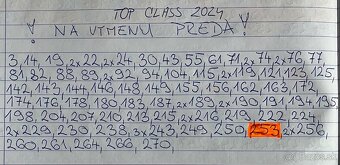 TOP CLASS 2024
! NA VÝMENU PREDAJ !
3, 14, 19, 2x22, 2x24, 30, 43, 55, 61, 71, 2x74, 2x76, 77,
81, 82, 88, 89, 2x92, 94, 104, 115, 2x119, 121, 123, 125,
142, 143, 144, 146, 148, 149, 155, 156, 162, 163, 172,
174, 176, 178, 180, 183, 187, 2x189, 2x190, 191, 194, 195,
198, 204, 207, 210, 213, 215, 2x216, 219, 222, 224,
2x229, 230, 238, 3x243, 249, 250, 253, 2x256,
260, 261, 264, 266, 270,